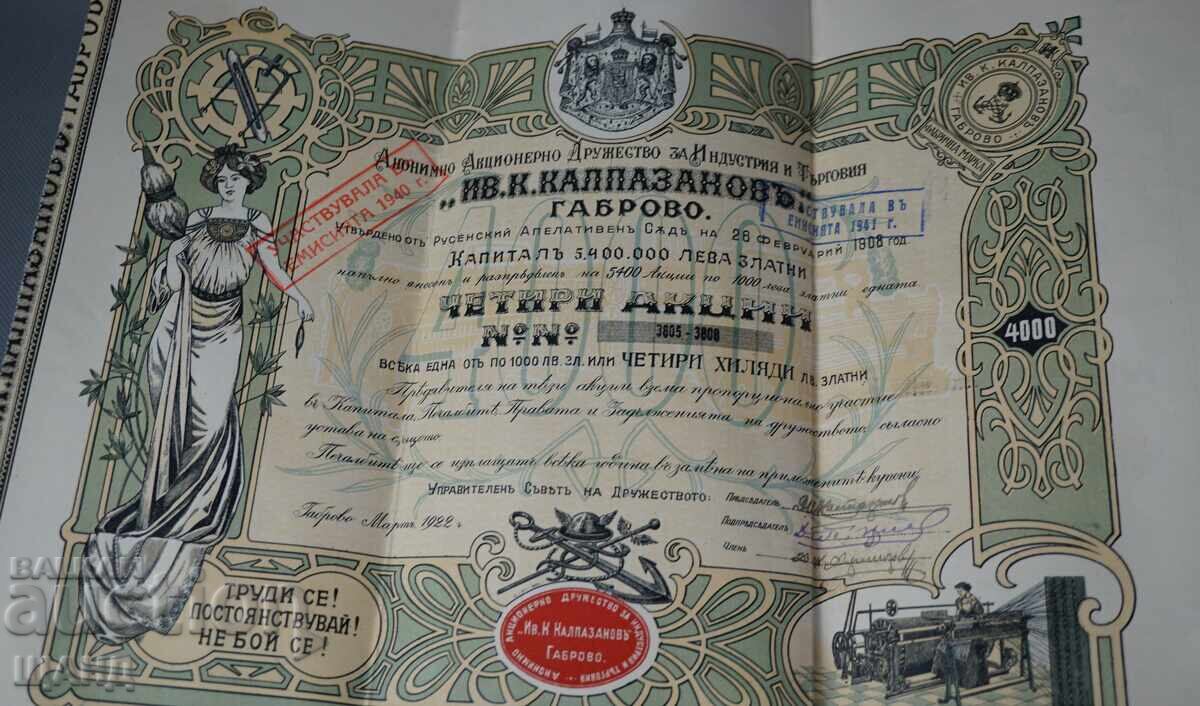 Анонимно Акционерно Дружество за Индустрия и Търговия
„ИВ. К. КАЛПАЗАНОВЪ“
ГАБРОВО.
Утвърдено отъ Русенский Апелативенъ Сѫдъ на 26 Февруарий 1908 год.
КАПИТАЛЪ 5.400.000 ЛЕВА ЗЛАТНИ
напълно внесенъ и разпрѣдѣленъ на 5400 Акции по 1000 лева златни едната
ЧЕТИРИ АКЦИИ
№ № 3805 - 3808
ВСѢКА ЕДНА ОТЪ ПО 1000 ЛВ. ЗЛ. ИЛИ ЧЕТИРИ ХИЛЯДИ ЛВ. ЗЛАТНИ
Прѣдявителя на тѣзи акции взема пропорционално участие
въ Капитала, Печалбитѣ, Правата и Задълженията на дружеството, съгласно
устава на същото.
Печалбитѣ ще се изплащатъ всѣка година въ замѣна на приложенитѣ купони.
УПРАВИТЕЛЕНЪ СЪВѢТЪ НА ДРУЖЕСТВОТО:
Прѣдседатель
Подпрѣдседатель
Членъ
Габрово Мартъ 1922 г.
УЧАСТВУВАЛА В
ЕМИСИЯТА 1940 г.
СТВУВАЛА ВЪ
ЕМИСИЯТА 1941 г.
ИВ. К. КАЛПАЗАНОВЪ
ГАБРОВО
ФАБРИЧНА МАРКА
4000
4000
ТРУДИ СЕ!
ПОСТОЯНСТВУВАЙ!
НЕ БОЙ СЕ!
АНОНИМНО АКЦИОНЕРНО ДРУЖЕСТВО ЗА ИНДУСТРИЯ И ТЪРГОВИЯ
„ИВ. К КАЛПАЗАНОВЪ“
ГАБРОВО.
КАЛПАЗАНОВЪ ГАБРОВО
БАЛКАН
auction
ЩАНД